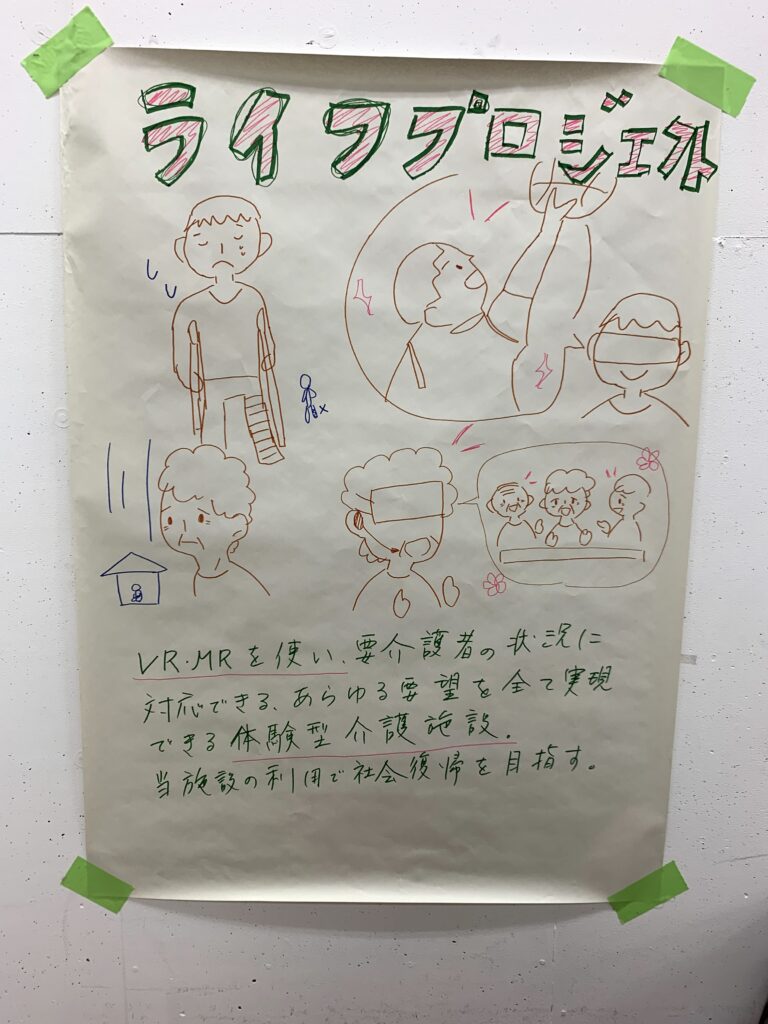 ライフプロジェクト
VR・MRを使い、要介護者の状況に
対応できる、あらゆる要望を全て実現
できる体験型介護施設。
当施設の利用で社会復帰を目指す。